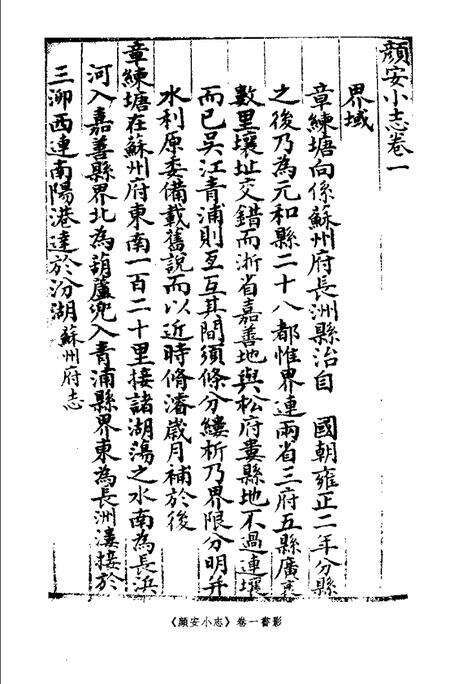 顔安小志卷一
界域
章練塘向係蘇州府長洲縣治自 國朝雍正二年分縣
之後乃為元和縣二十八都惟界連兩省三府五縣廣袤
數里壤址交錯而浙省嘉善地與松府婁縣地不過連壤
而已吴江青浦則互互其間須條分縷析乃界限分明并
水利原委備載舊說而以近時脩濬歲月補於後
章練塘在蘇州府東南一百二十里接諸湖蕩之水南為長浜
河入嘉善縣界北為葫蘆兜入青浦縣界東為長洲漊接於
三泖西連南陽港達於汾湖蘇州府志
《顔安小志》卷一書影